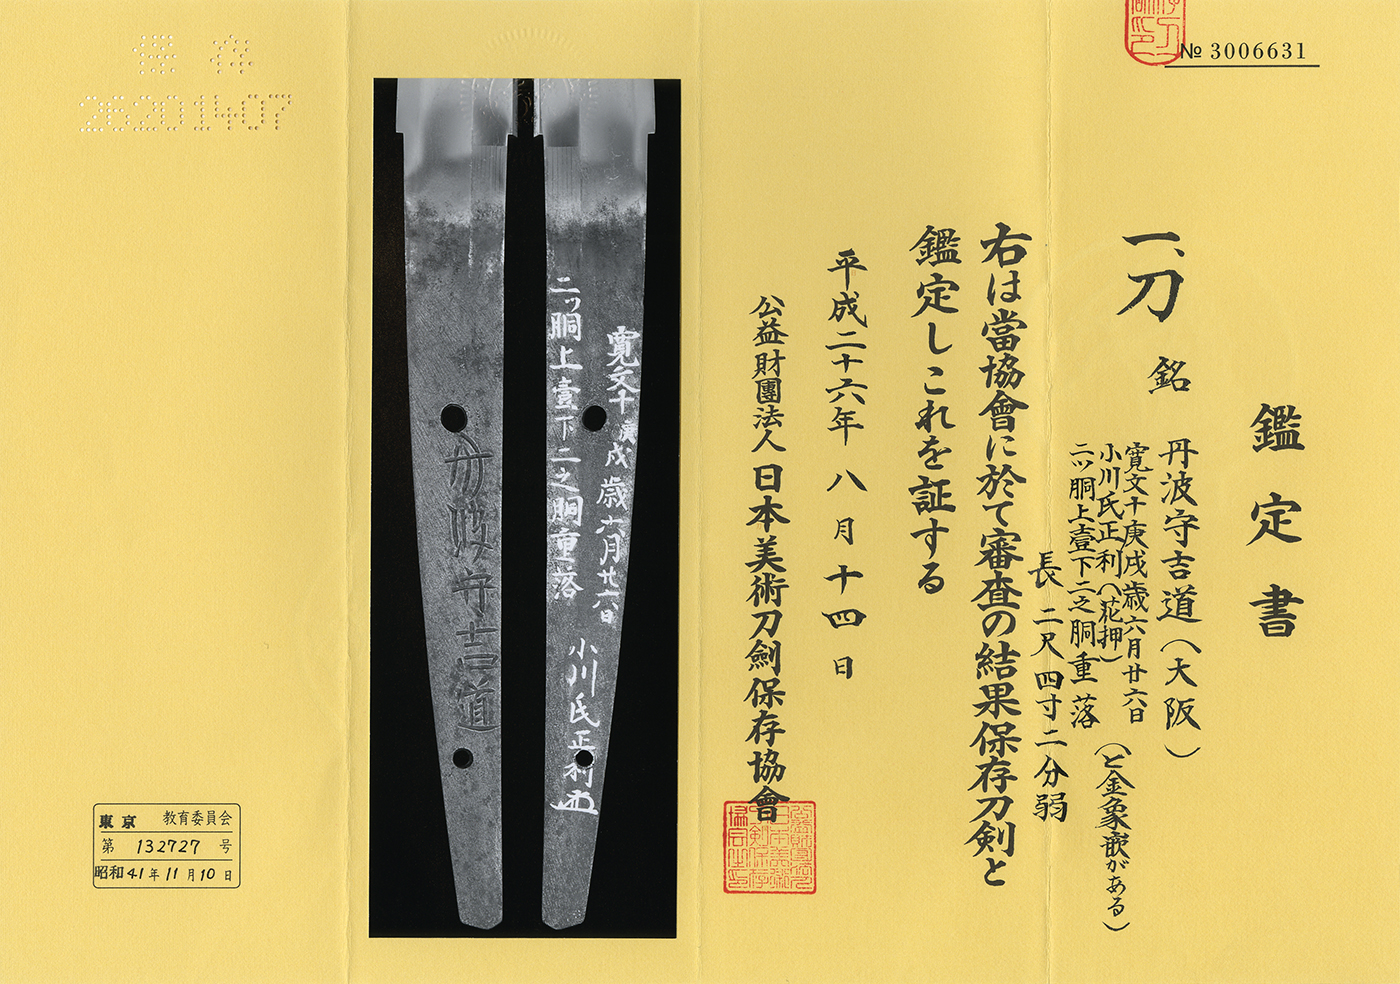 № 3006631
鑑定書
一、刀 銘 丹波守吉道(大阪)
寛文十庚戌歳六月廿六日
小川氏正利(花押)
二ッ胴上壹下二之胴重落
(と金象嵌がある)
長 二尺四寸二分弱
右は當協會に於て審査の結果保存刀剣と
鑑定しこれを証する
平成二十六年 八月十四日
公益財團法人 日本美術刀劍保存協會
寛文十庚戌歳六月廿六日
二ッ胴上壹下二之胴重落
小川氏正利
丹波守吉道
保存
26201407
東京 教育委員会
第 132727 号
昭和41年11月10日